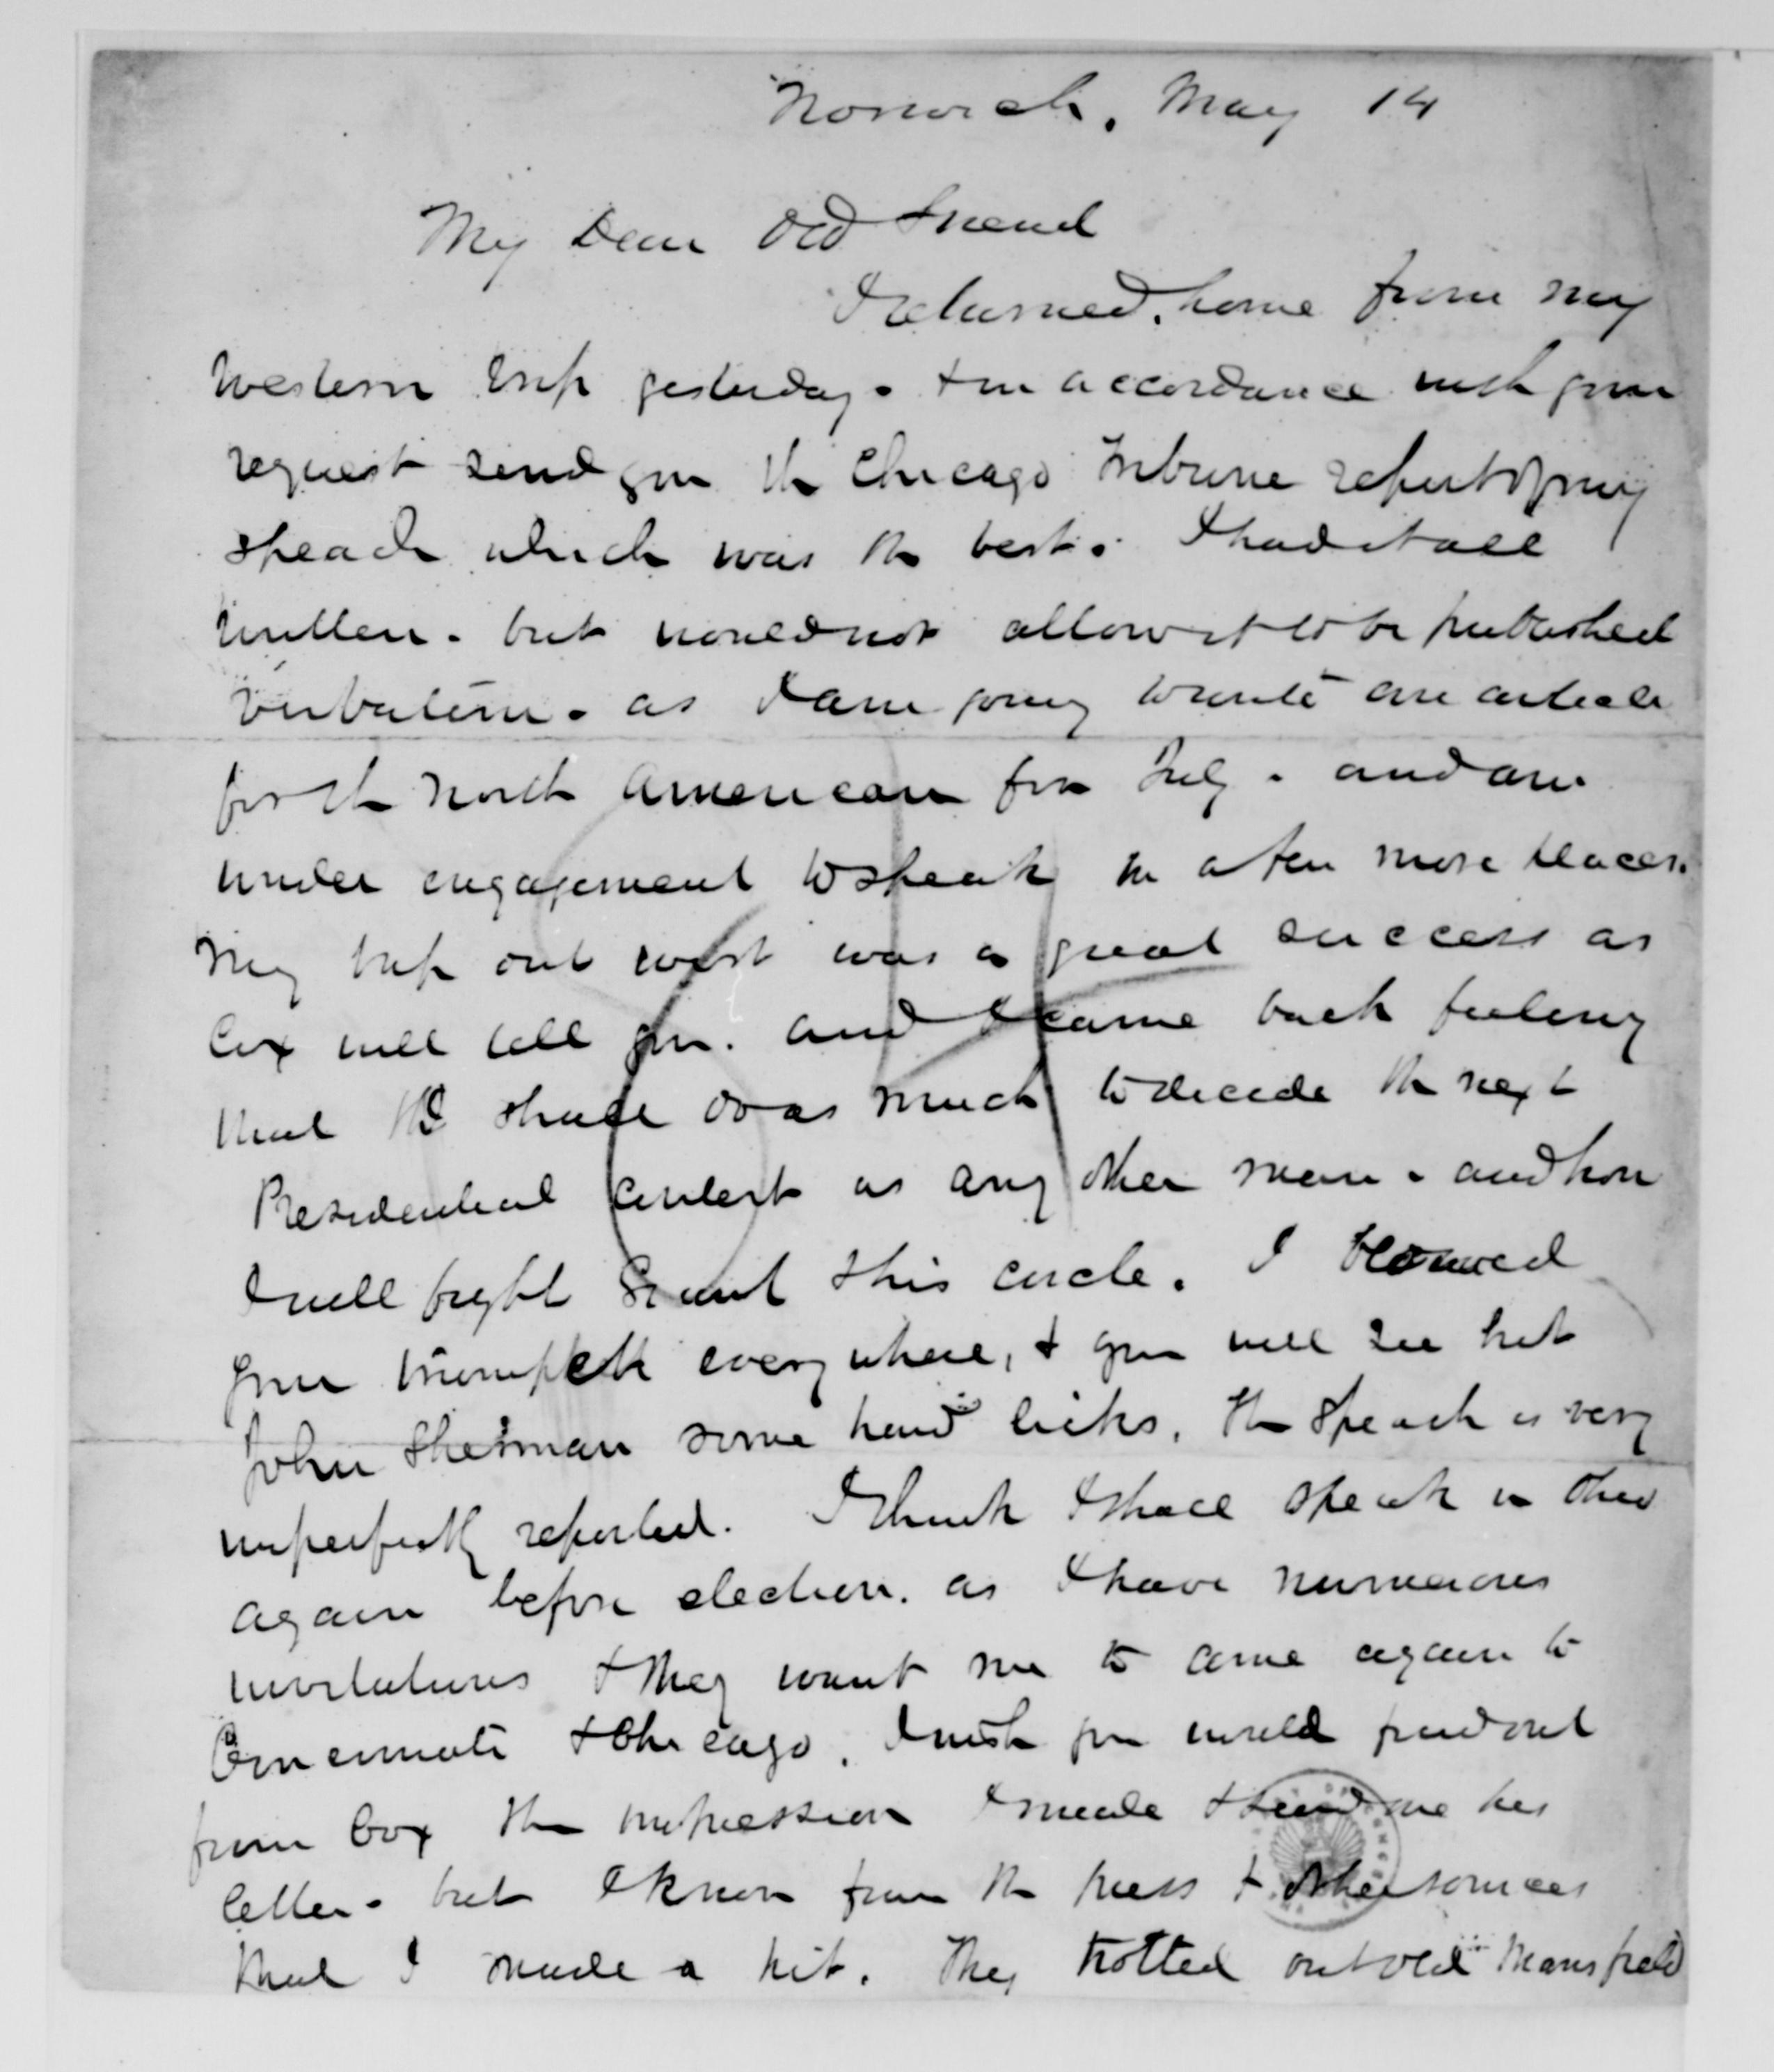 Norwich, May 14
My Dear Old Friend
I returned home from my
Western trip yesterday. & in accordance with your
request send you the Chicago Tribune report of my
speach which was the best. I had it all
written. but would not allow it to be published
verbatim. as I am going to write an article
for the North American for July. and am
under engagement to speak in a few more places.
My trip out west was a great success as
Cox will tell you. and I came back feeling
that shall do as much to decide the next
Presidential contest as any other man. and how
I will fight Grant this circle. I blowed
your trumpett everywhere, & you will see hit
John Sherman some hard licks. The speach is very
imperfectly reported. I think I shall speak in Ohio
again before election. as I have numerous
invitations & they want me to come again to
Cincinnati & Chicago. I wish you would find out
from Cox the impression I made & send me his
letter. but I know from the press & other sources
that I made a hit. They trotted out old Mansfield